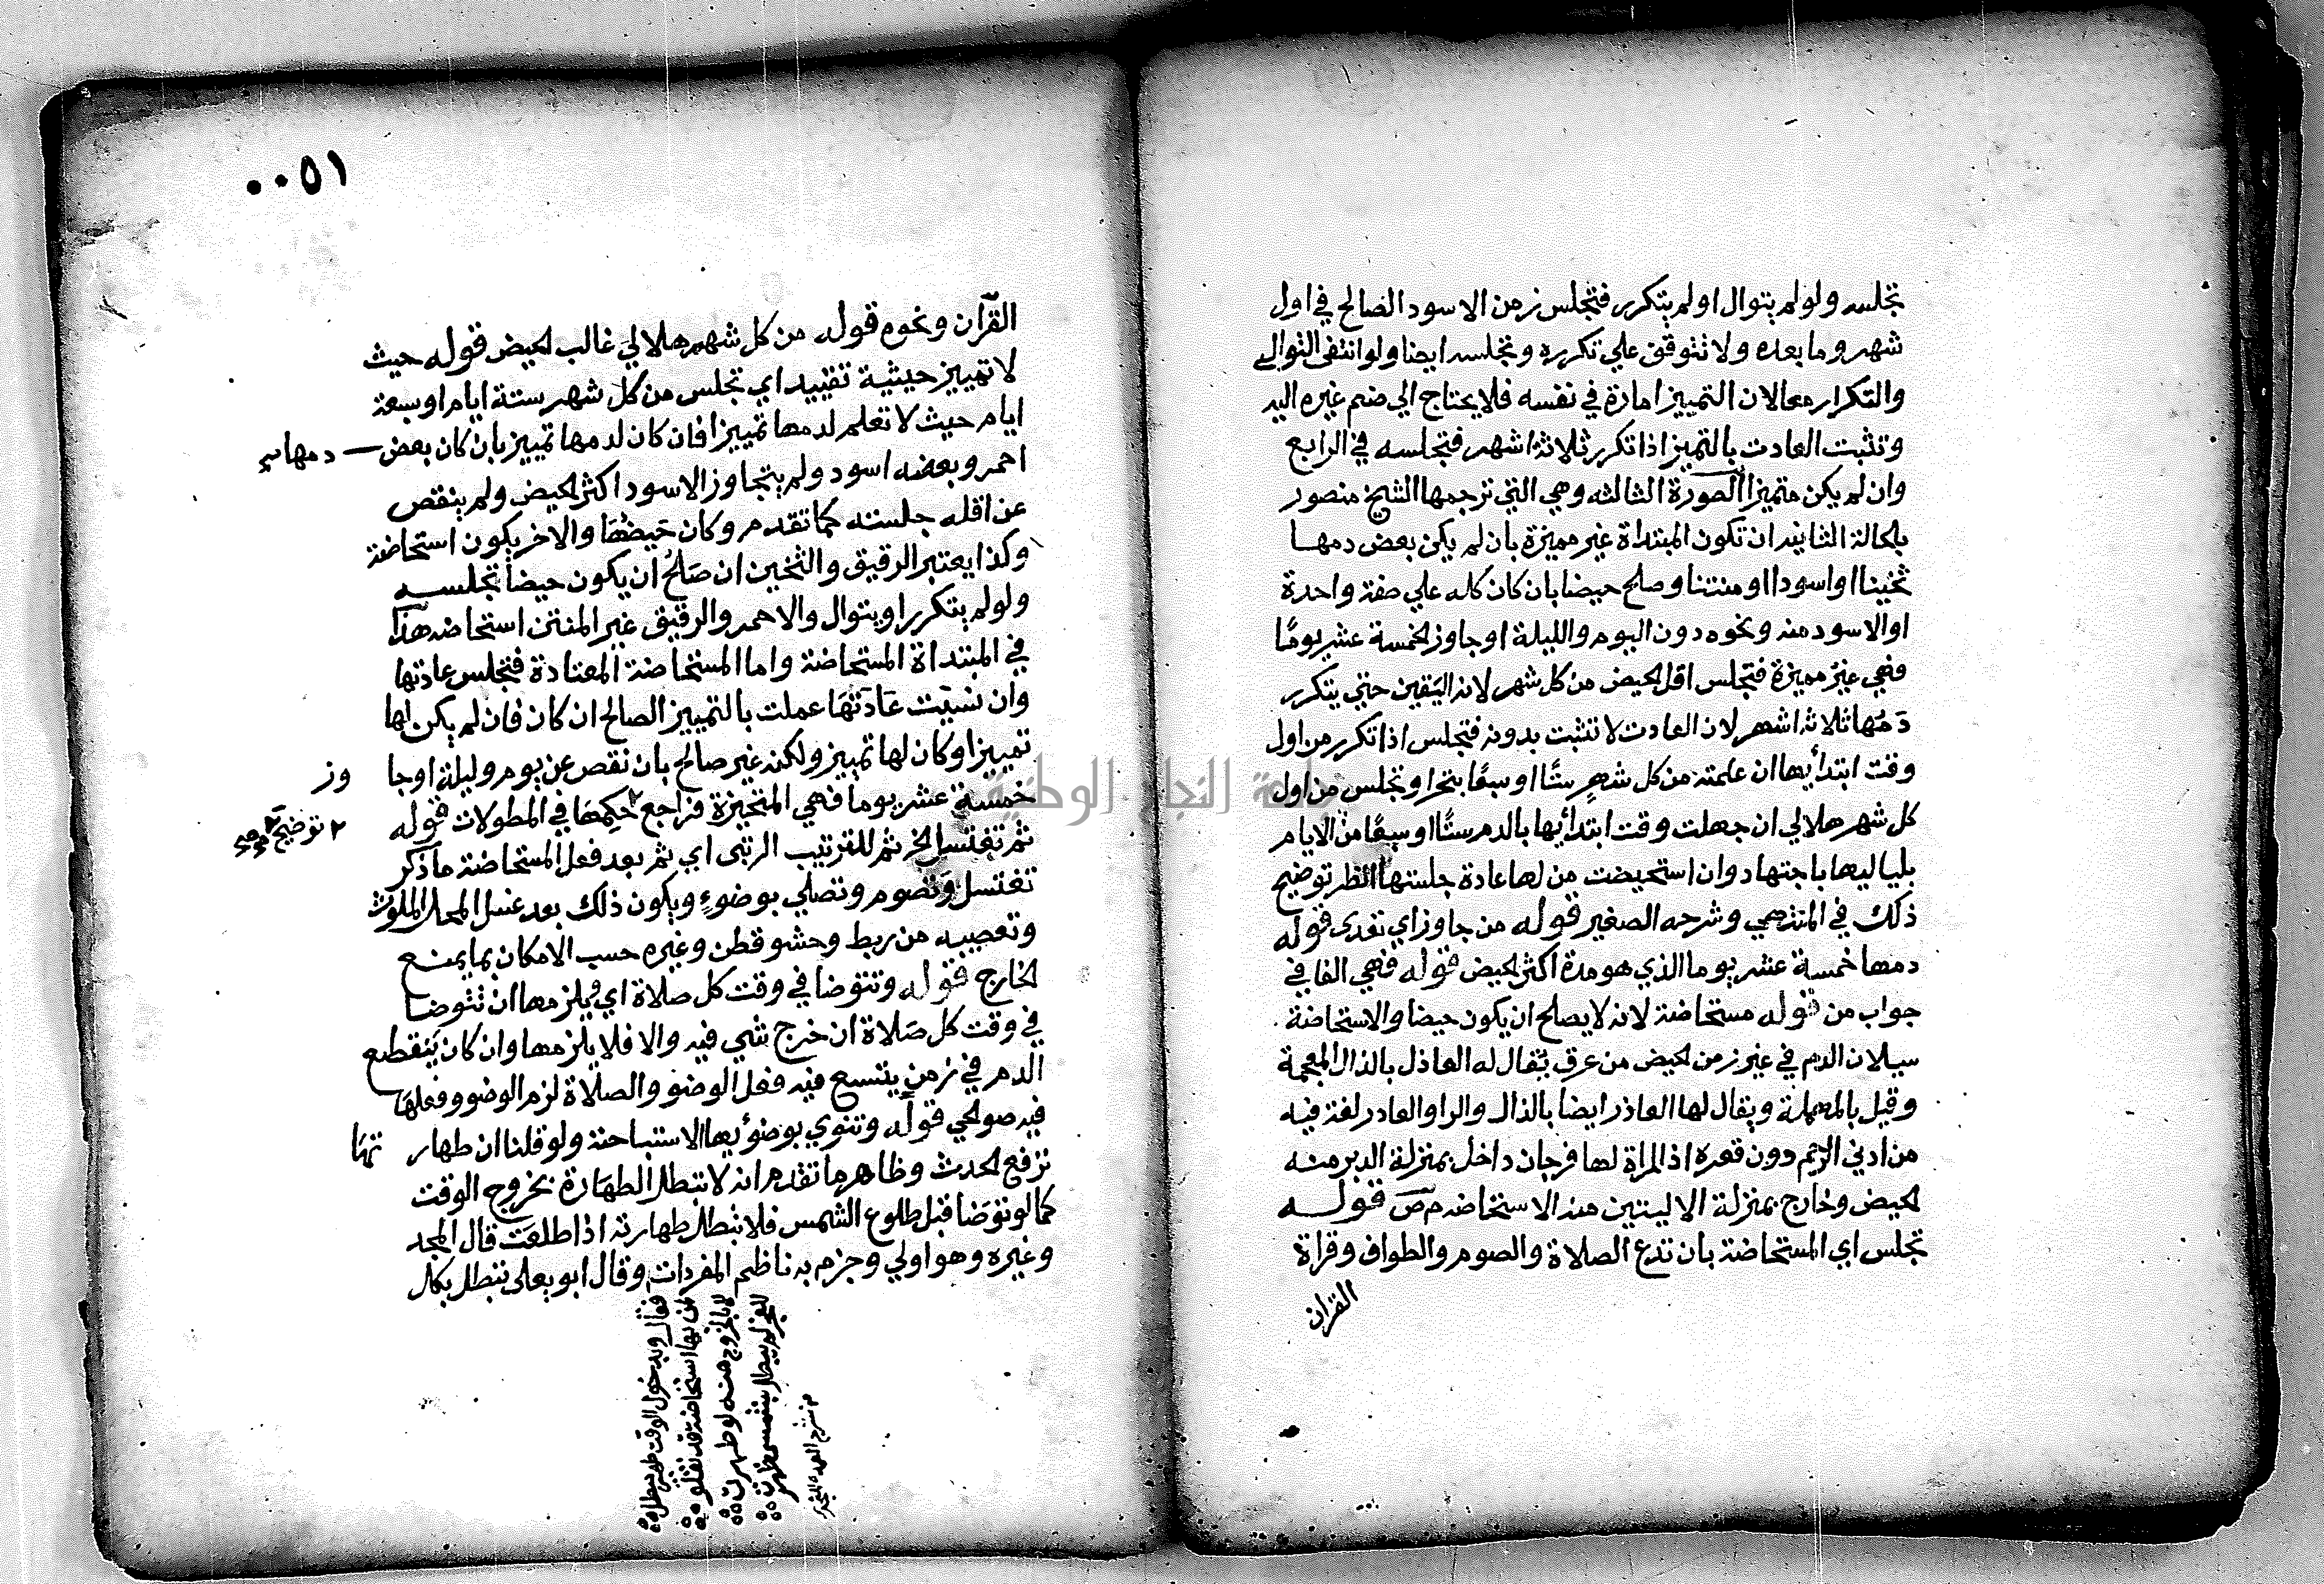 تجلسه ولو لم يتوال او لم يتكرر فتجلس زمن الاسود الصالح في اول
شهر وما بعده ولا تتوقف علي تكرره وتجلسه ايضا ولو انتفى التوالي
والتكرار معا لان التمييز امارة في نفسه فلا يحتاج الي ضم غيره اليه
وتثبت العادت بالتميز اذا تكرر ثلاثة اشهر فتجلسه في الرابع
وان لم يكن متميزا الصورة الثالثه وهي التي ترجمها الشيخ منصور
بالحالة الثانيه ان تكون المبتداة غير مميزة بان لم يكن بعض دمها
ثخينا او اسودا او منتنا وصلح حيضا بان كان كله علي صفة واحدة
او الاسود منه ونحوه دون اليوم والليلة او جاوز الخمسة عشر يومًا
فهي غير مميزة فتجلس اقل الحيض من كل شهر لانه اليَقين حتي يتكرر
دَمُها ثلاثة اشهر لان العادت لا تثبت بدونه فتجلس اذا تكرر من اول
وقت ابتدأيها ان علمته من كل شهرٍ ستًا او سبعًا بتحرا وتجلس من اول
كل شهر هلالي ان جهلت وقت ابتدأيها بالدم ستًا او سبعًا من الايام
بلياليها باجتهاد وان استحيضت من لها عادة جلستها انظر توضيح
ذلك في المنتهي وشرحه الصغير قوله من جاوز اي تعدى قوله
دمها خمسة عشر يوما الذي هو مدة اكثر الحيض قوله فهي الفا في
جواب من قوله مستحاضة لانه لا يصلح ان يكون حيضا والاستحاضة
سيلان الدم في غير زمن الحيض من عرق يُقال له العاذل بالذال المعجمة
وقيل بالمهملة ويقال لها العاذر ايضا بالذال والرا والعادر لغة فيه
من ادني الرحم دون قعره اذ المراة لها فرجان داخل بمنزلة الدبر منه
الحيض وخارج بمنزلة الاليتين منه الاستحاضه م ص قوله
تجلس اي المستحاضة بان تدع الصلاة والصوم والطواف وقراة
القران
٠٠٥١
القرآن ونحوه قوله من كل شهر هلالي غالب الحيض قوله حيث
لا تمييز حيثية تقييد اي تجلس من كل شهر ستة ايام او سبعة
ايام حيث لا تعلم لدمها تمييزا فان كان لدمها تمييز بان كان بعض دمها
احمر وبعضه اسود ولم يتجاوز الاسود اكثر الحيض ولم ينقص
عن اقله جلسته كما تقدم وكان حَيضُهَا والاخر يكون استحاضة
وكذا يعتبر الرقيق والثخين ان صَالحُ ان يكون حيضا تجلسه
ولو لم يتكرر او يتوال والاحمر والرقيق غير المنتن استحاضه هذا
في المبتداة المستحاضة واما المستحاضة المعتادة فتجلس عادتها
وان نسيت عَادَتهَا عملت بالتمييز الصالح ان كان فان لم يكن لها
تمييز او كان لها تمييز ولكنه غير صالح بان نقص عن يوم وليلة او جا وز
خمسة عشر يوما فهي المتحيزة فراجع حكمها في المطولات قوله
٢ توضيح
ثم تغتسل الخ ثم للترتيب الرتبى اي ثم بعد فعل المستحاضة ما ذكر
تغتسل وَتصوم وتصلي بوضوءٍ ويكون ذلك بعد غسل المحل الملوث
وتعصيبه من ربط وحشو قطن وغيره حسب الامكان بما يمنع
الخارج قوله وتتوضا في وقت كل صلاة اي فيلزمها ان تتوضا
في وقت كل صَلاة ان خرج شي فيه والا فلا يلزمها وان كان يَنقطع
الدم في زمن يتسع فيه فعل الوضو والصلاة لزم الوضو وفعلهَا
فيه صوالحي قوله وتنوي بوضوُيها الاستباحة ولو قلنا ان طهار تهَا
ترفع الحدث وظاهر ما تقدم انه لا تبطل الطهَارة بخروج الوقت
كما لو توَضا قبل طلوع الشمس فلا تبطل طهارته اذا طلعَت قال المجد
وغيره وهو اولي وجزم به ناظم المفردات وقال ابو يعلى تبطل بكل
فقال وبدخول الوقت طهر يبطل
لمن بها استحاضة قد نقلو
لا بالخروج منه لو تطهرت
للفجر لم يبطل بشمس ظهرت